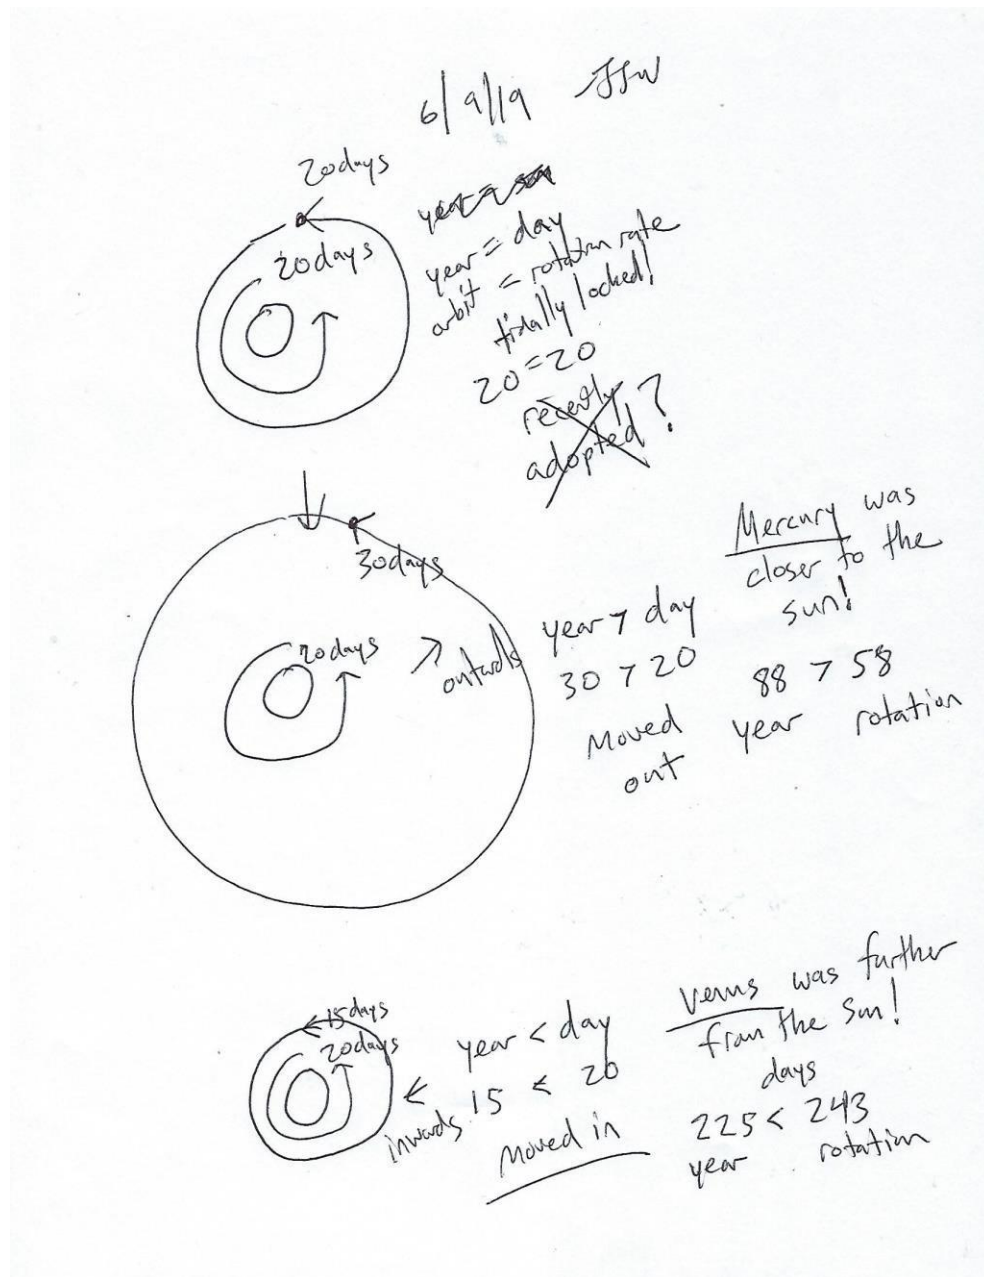 6/9/19 JJW
20days
20days
year = day
orbit = rotation rate
tidally locked!
20 = 20
recently
adopted?
30days
20days
> outwards
year > day
30 > 20
moved
out
Mercury was
closer to the
sun!
88 > 58
year rotation
15days
20days
< inwards
year < day
15 < 20
moved in
Venus was further
from the sun!
days
225 < 243
year rotation